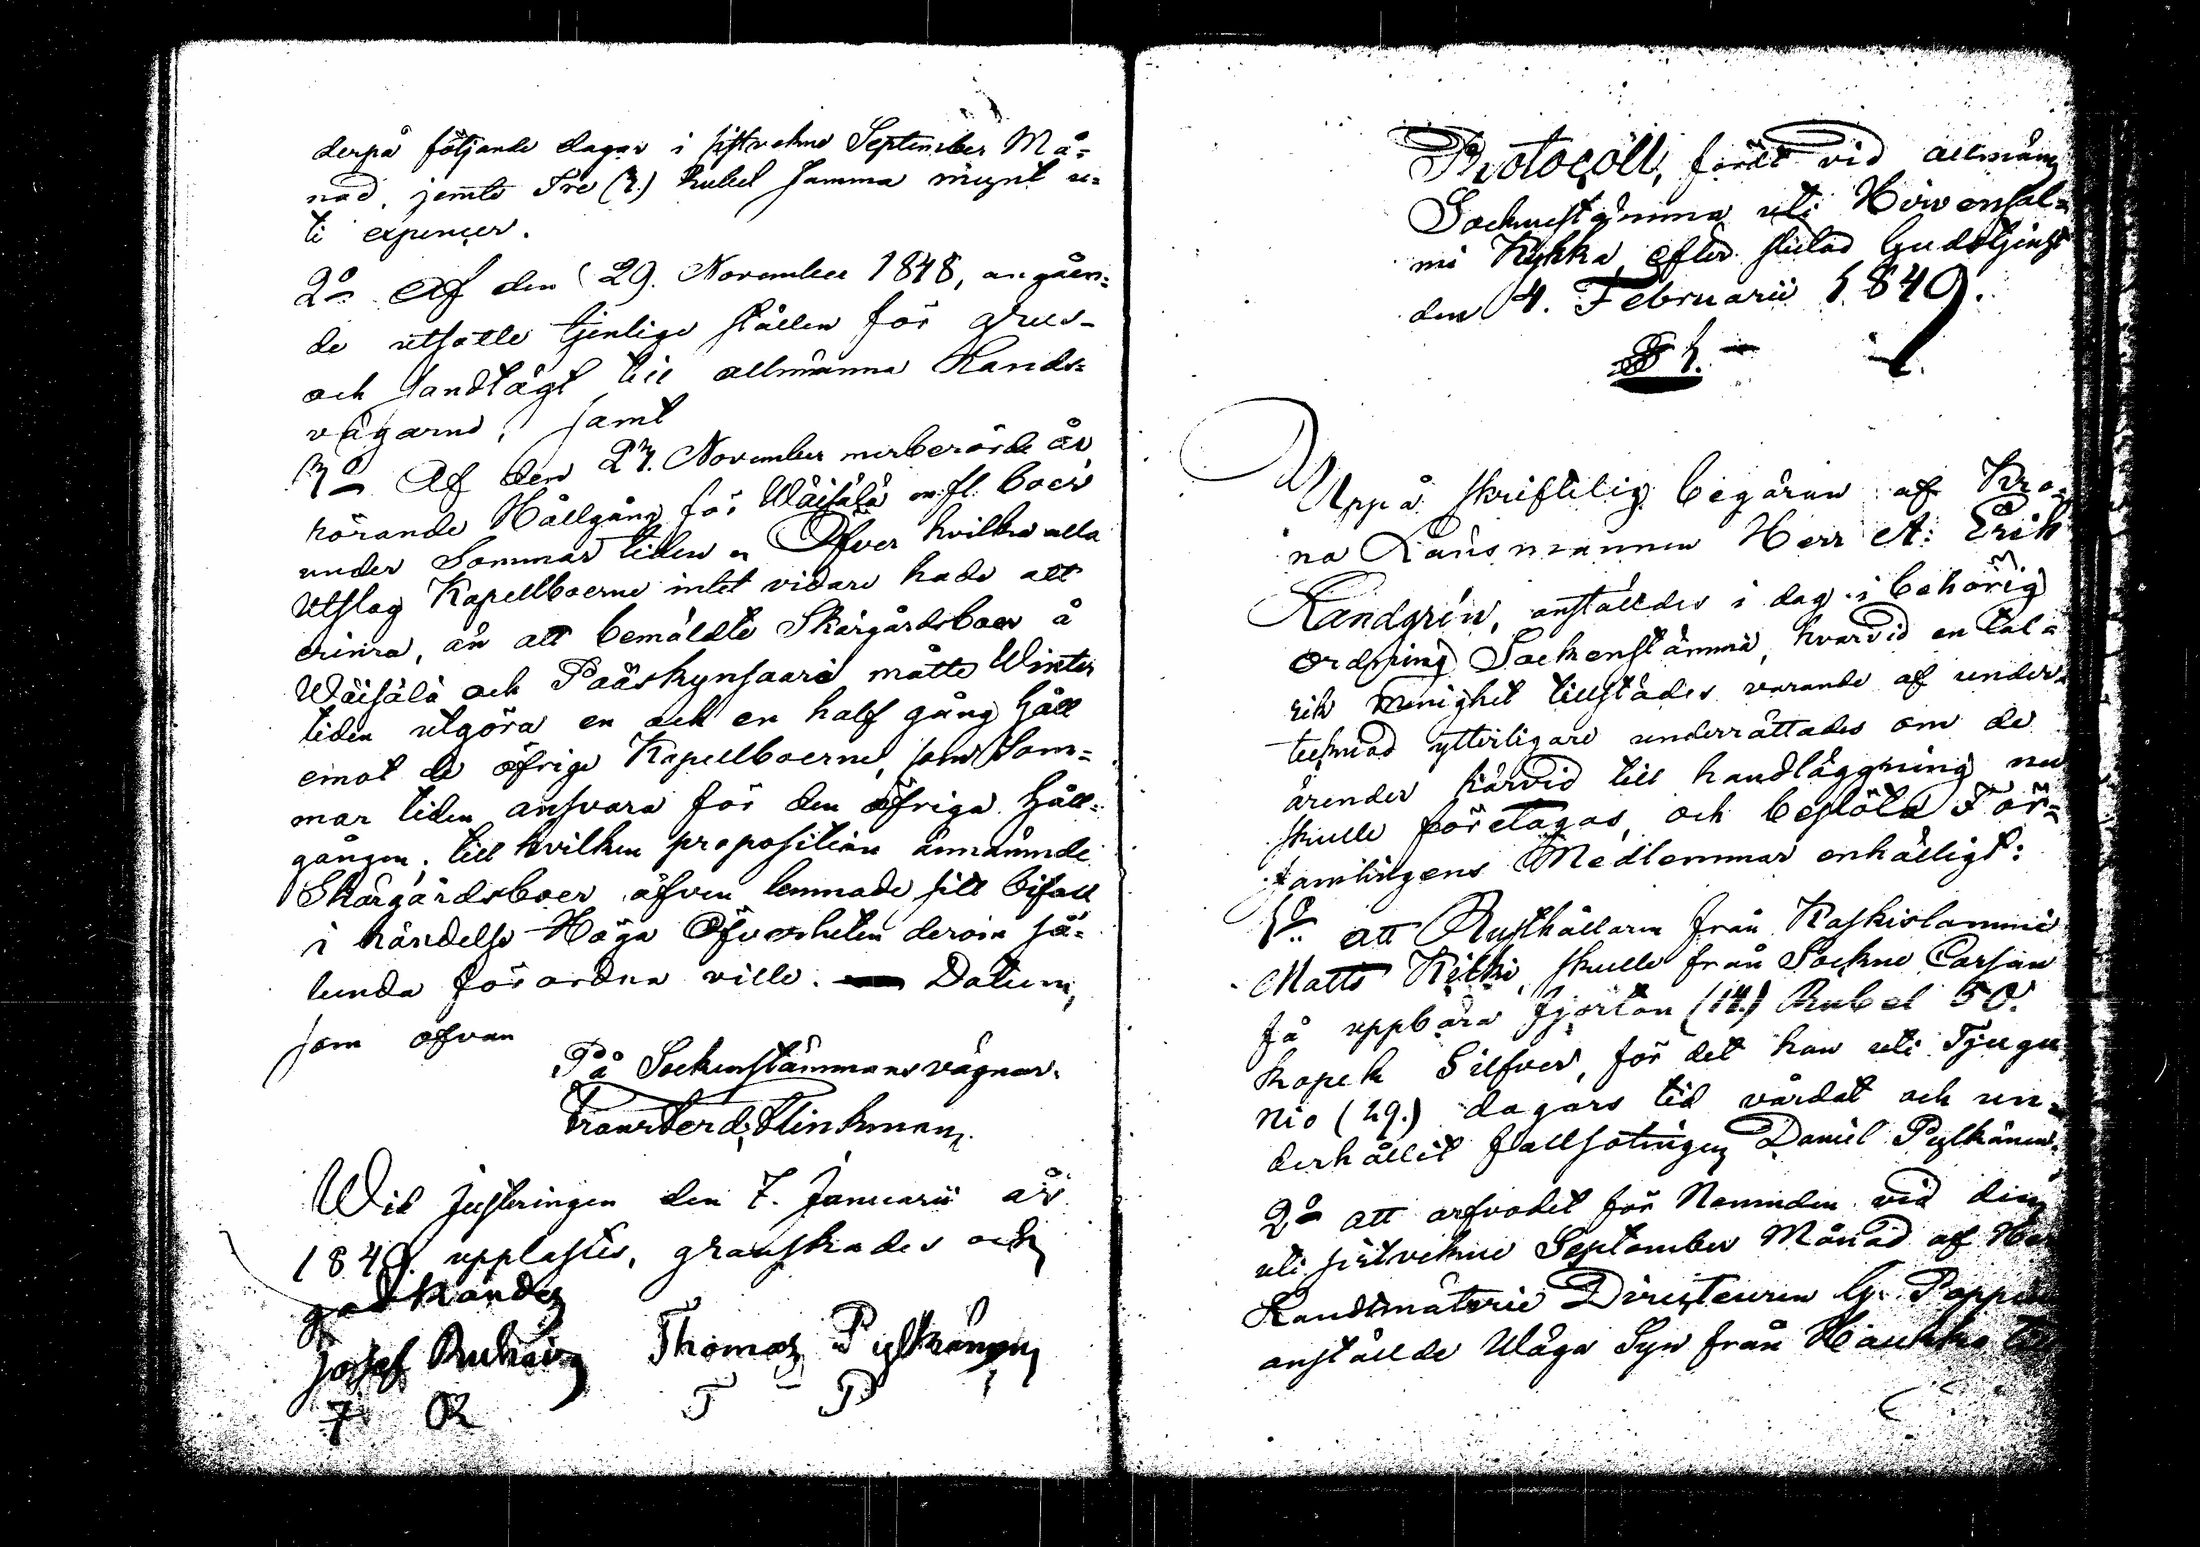 derpå följande dagar i sistvekne September Må=
nad, jemte Tre (3.) Rubel samma mynt u=
ti expencer.
2o Af den 29. November 1848, angåen=
de utsatte tjenlige ställen för grus-
och sandtägt till allmänna Lands=
vägarne, samt
3o Af den 27. November merberörde år
rörande Hållgång för Wäisälä m. fl. boer
under Sommar tiden. Öfver hvilka alla
Utslag Kapellboerne intet vidare hade att
erinra, än att bemäldte Skärgårdsboer å
Wäisälä och Pääskynsaari måtte Winter
tiden utgöra en och en half gång håll
emot de öfrige Kapellboerne, som Som=
mar tiden ansvara för den öfriga håll=
gången; till hvilken proposition ännämnde
Skärgårdsboer äfven lemnade sitt bifall
i händelse Höga Öfverheten derom så=
lunda förordna ville. — Datum,
som ofvan
På Sockenstämmans vägnar.
Frans Ferd. Flinkman
Wid justeringen den 7. Januarii år
1849 upplästes, granskades och
godkändes
Josef Ruhain Thomas Pylkänen
T P
Protocoll, fördt vid allmän
Sockenstämma uti Hirvensal=
mi Kyrka efter slutad Gudstjenst
den 4. Februarii 1849.
§ 1.
Uppå skriftelig begäran af Kro=
no Länsmannen Herr A: Erik
Landgrén, anställdes i dag i behörig
ordning Sockenstämma, hvarvid en tal=
rik menighet tillstädes varande af under=
tecknad ytterligare underrättades om de
ärender härvid till handläggning nu
skulle företagas, och beslöto För=
samlingens Medlemmar enhälligt:
1o att Rusthållaren från Kaskislammi
Matts Kilki, skulle från Sockne Cassan
få uppbära fjorton (14.) Rubel 50.
kopek Silfver, för det han uti Tjugu
nio (29.) dagars tid vårdat och un=
derhållit fallsotingen Daniel Pylkänen.
2o att arfvodet för Nemnden vid den
uti sistvekne September Månad af Herr
Landtmäterie Directeuren G. Poppius
anställde Wäga Syn från Haukka till